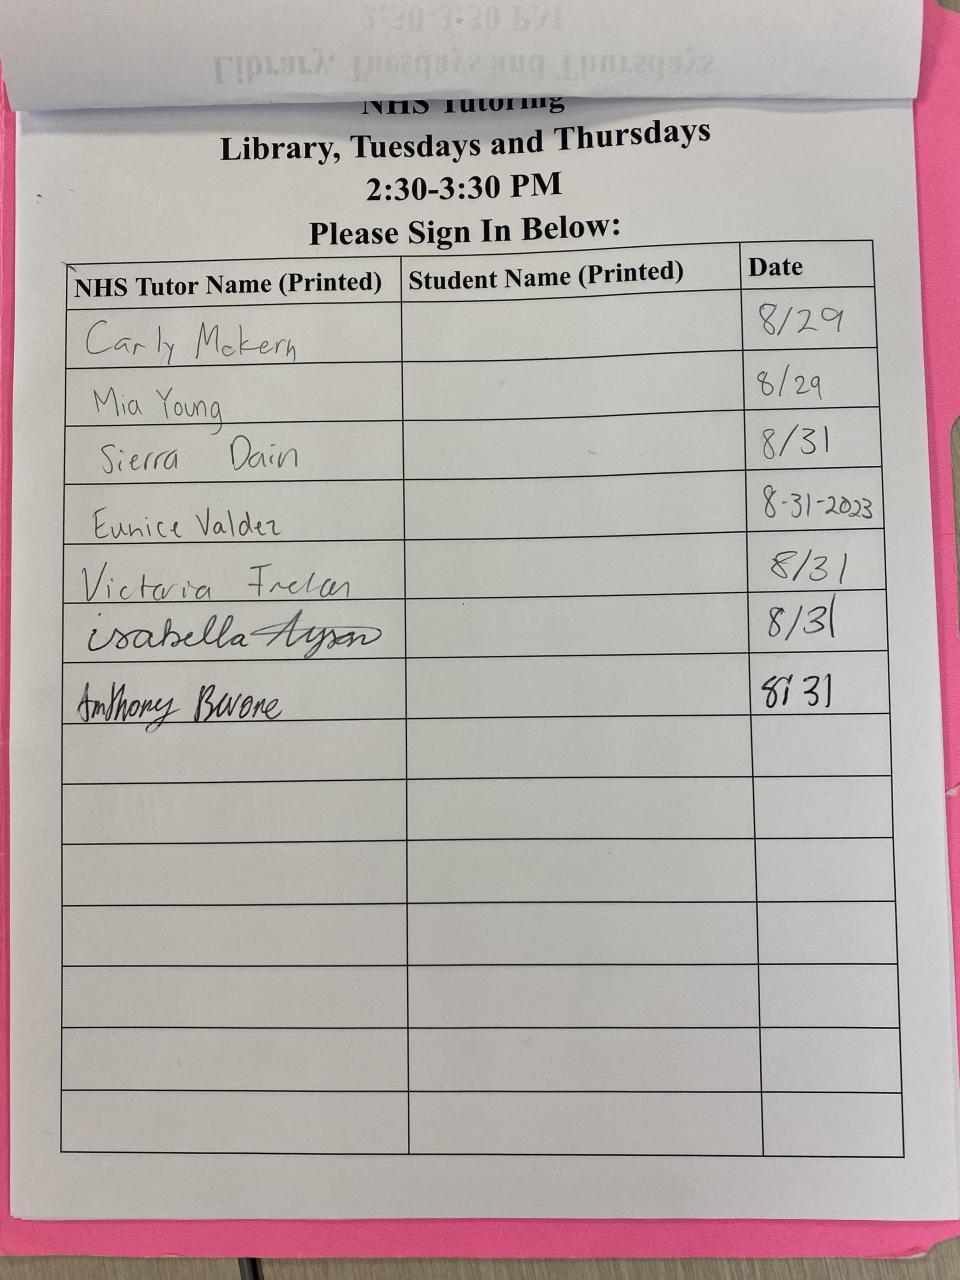 2:30-3:30 PM
Library, Tuesdays and Thursdays
NHS Tutoring
Library, Tuesdays and Thursdays
2:30-3:30 PM
Please Sign In Below:
NHS Tutor Name (Printed) Student Name (Printed) Date
Carly Mckern 8/29
Mia Young 8/29
Sierra Dain 8/31
Eunice Valdez 8-31-2023
Victoria 8/31
isabella Ayson 8/31
Anthony 8/31